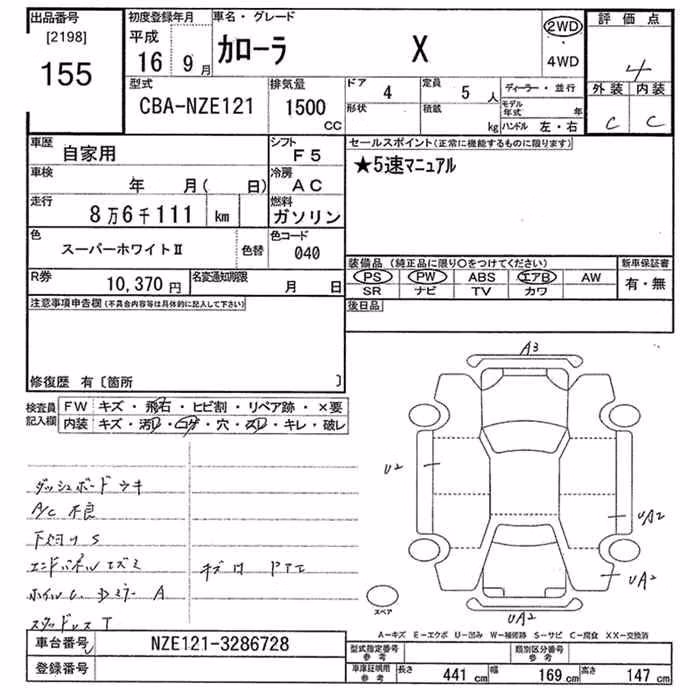 出品番号
[2198]
155
初度登録年月
平成
16 9月
車名・グレード
カローラ X
2WD
4WD
評価点
4
外装 内装
C C
型式
CBA-NZE121
排気量
1500
CC
ドア
4
定員
5 人
形状
積載
kg
ディーラー・並行
モデル年式 年
ハンドル 左・右
車歴
自家用
シフト
F5
車検
年 月( 日)
冷房
AC
走行
8万6千111 km
燃料
ガソリン
色
スーパーホワイトⅡ
色替
色コード
040
R券
10,370円
名変通知期限
月 日
セールスポイント(正常に機能するものに限ります)
★5速マニュアル
装備品 (純正品に限り○をつけてください)
新車保証書
PS PW ABS エアB AW
SR ナビ TV カワ
有・無
後日品
注意事項申告欄(不具合内容等は具体的に記入して下さい)
修復歴 有〔箇所 〕
検査員記入欄
FW キズ・飛石・ヒビ割・リペア跡・×要
内装 キズ・汚れ・コゲ・穴・スレ・キレ・破レ
ダッシュボードウキ
A/C 不良
S
エンドパネル
A
A3
U2
UA2
UA2
UA2
スペア
A-キズ E-エクボ U-凹み W-補修跡 S-サビ C-腐食 XX-交換済
車台番号
NZE121-3286728
登録番号
型式指定番号
参考
類別区分番号
参考
車庫証明用
参考
長さ 441 cm 幅 169 cm 高さ 147 cm